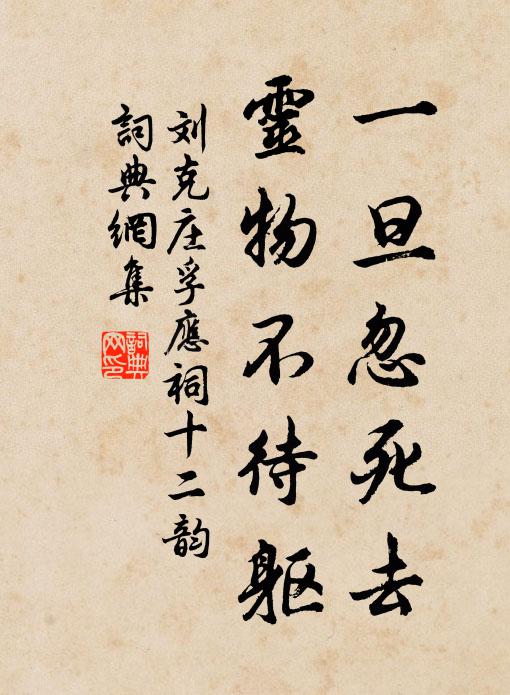 一旦忽死去
靈物不待躯
刘克庄孚應祠十二韵
詞典網集
詞典网印